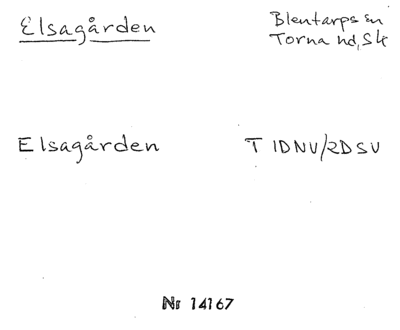 Elsagården
Blentarps sn
Torna hd, Sk
Elsagården
T 1DNV/2DSV
Nr 14167